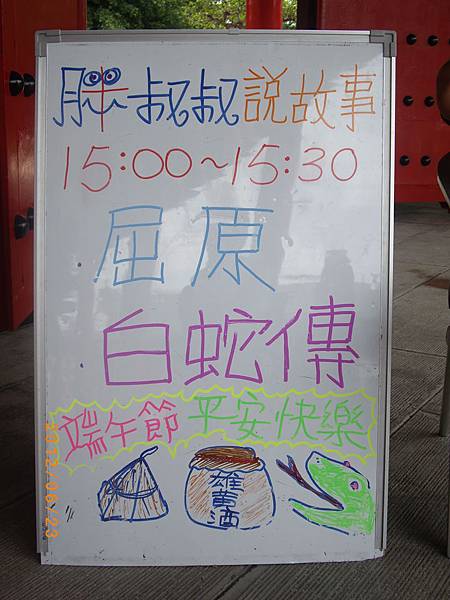 胖叔叔說故事
15:00~15:30
屈原
白蛇傳
端午節 平安快樂
雄黃酒
2012/06/23